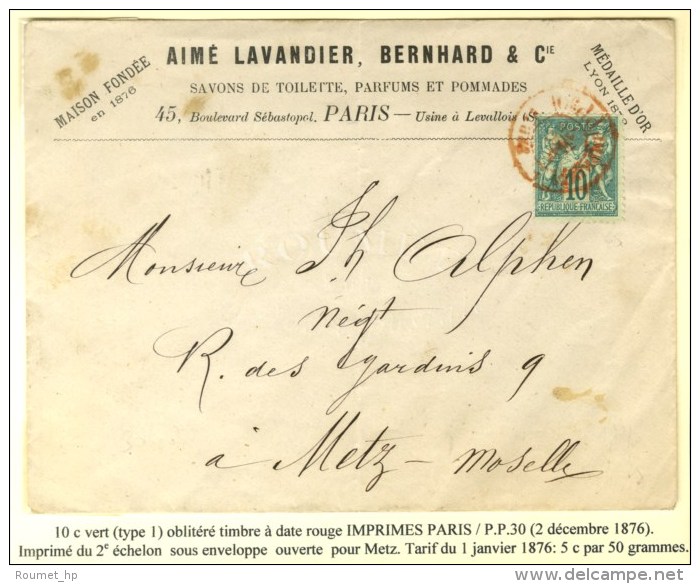 AIMÉ LAVANDIER, BERNHARD & CIE
MAISON FONDÉE
en 1876
SAVONS DE TOILETTE, PARFUMS ET POMMADES
MÉDAILLE D'OR
LYON 187
45, Boulevard Sébastopol. PARIS — Usine à Levallois
POSTE
10
REPUBLIQUE FRANÇAISE
Monsieur Ph Alphen
Négt
R. des Jardins 9
à Metz – Moselle
10 c vert (type 1) oblitéré timbre à date rouge IMPRIMES PARIS / P.P.30 (2 décembre 1876).
Imprimé du 2e échelon sous enveloppe ouverte pour Metz. Tarif du 1 janvier 1876: 5 c par 50 grammes.
Roumet_hp
delcampe.net